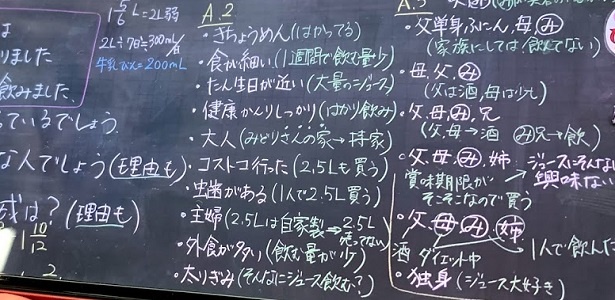 は
りました
飲みました.
ているでしょう.
な人でしょう(理由も)
は?(理由も)
1 10/12
2
1 5/6 L=2L弱
2L÷7日≒300mL/日
牛乳びん=200mL
A.2
・きちょうめん(はかってる)
・食が細い(1週間で飲む量少)
・たん生日が近い(大量のジュース)
・健康かんりしっかり(はかり飲み)
・大人(みどりさんの家→持家)
・コストコ行った(2.5Lも買う)
・虫歯がある(1人で2.5L買う)
・主婦(2.5Lは自家製⇒2.5L売ってない)
・外食が多い(飲む量が少)
・太りぎみ(そんなにジュース飲む?)
A.3
・父単身ふにん,母,み
(家族にしては飲んでない)
・母,父,み
(父は酒,母は少し)
・父,母,み,兄
(父,母→酒 み兄→飲)
・父,母,み,姉→ジュースにそんな
興味な
賞味期限が
そこそこなので買う
・父,母,み,姉
酒 ダイエット中 1人で飲んだ
・独身(ジュース大好き)